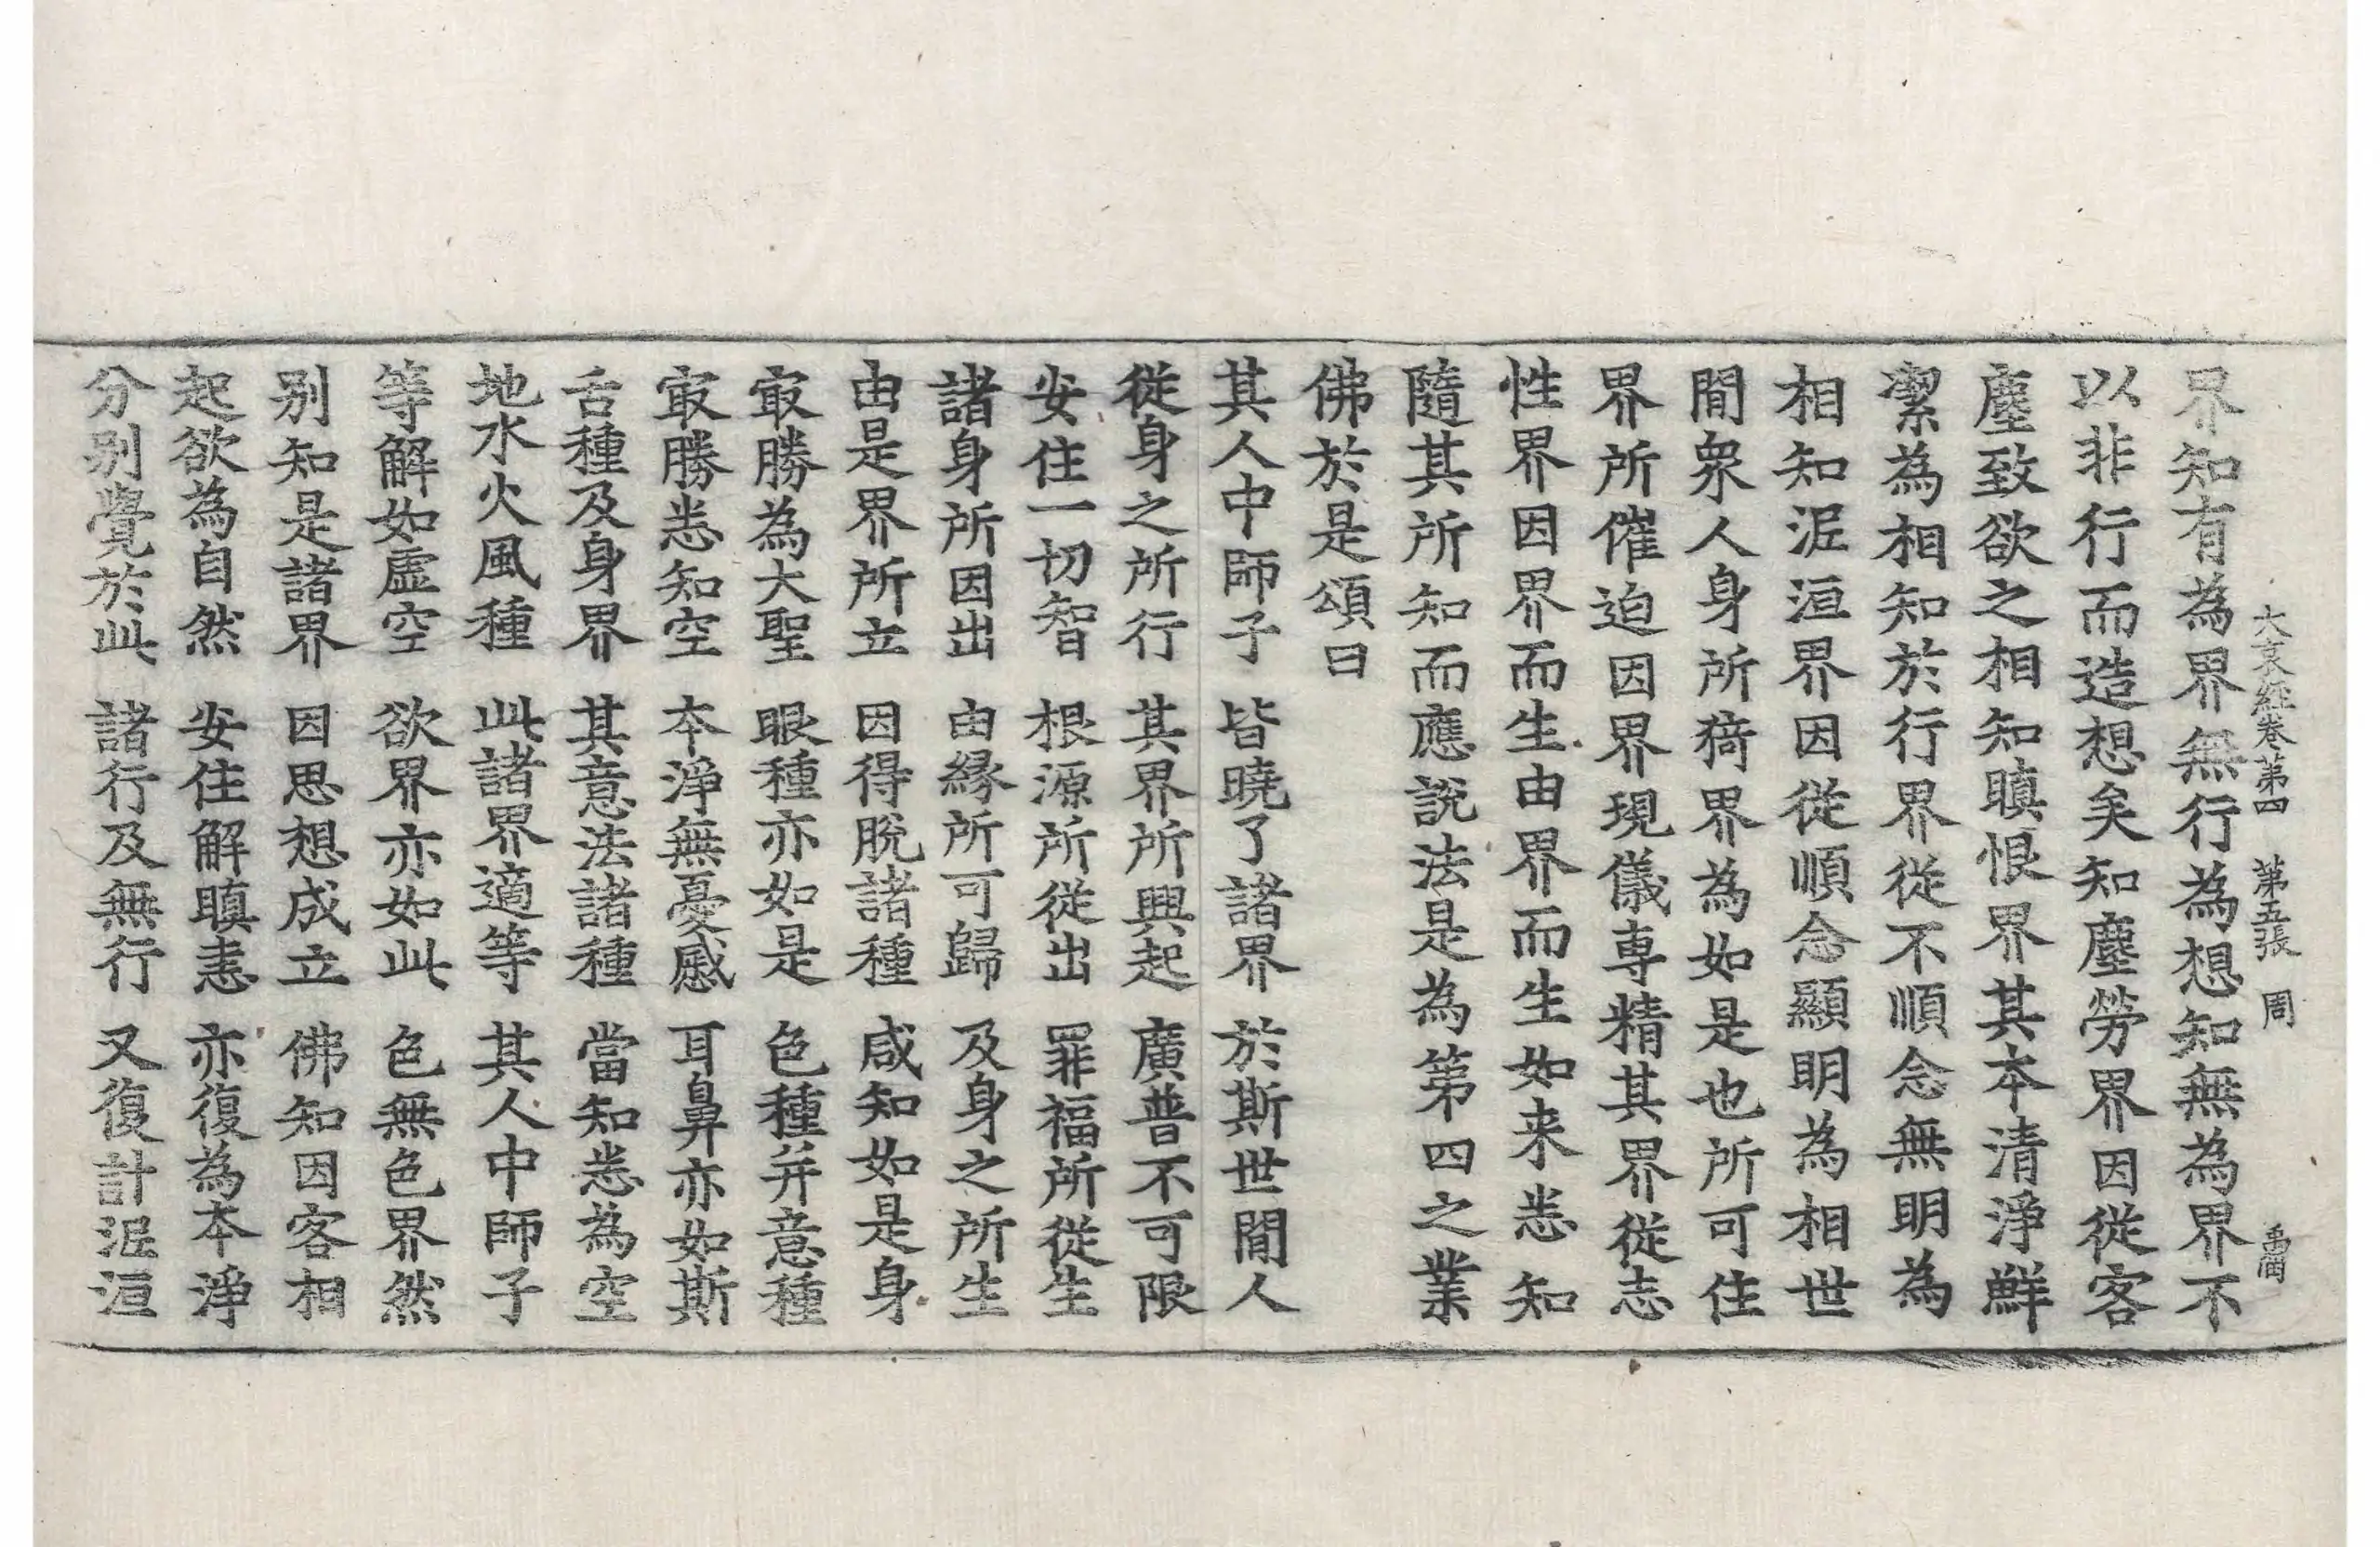 大哀經卷第四　第五張　周　禹𠕋
界知有為界無行為想知無為界不
以非行而造想矣知塵勞界因從客
塵致欲之相知瞋恨界其本清淨鮮
潔為相知於行界從不順念無明為
相知泥洹界因從順念顯明為相世
間衆人身所猗界為如是也所可住
界所催迫因界現儀專精其界從志
性界因界而生由界而生如来悉知
隨其所知而應說法是為第四之業
佛於是頌曰
其人中師子　皆曉了諸界　於斯世間人
從身之所行　其界所興起　廣普不可限
安住一切智　根源所從出　罪福所從生
諸身所因出　由緣所可歸　及身之所生
由是界所立　因得脫諸種　咸知如是身
㝡勝為大聖　眼種亦如是　色種并意種
㝡勝悉知空　本淨無憂慼　耳鼻亦如斯
舌種及身界　其意法諸種　當知悉為空
地水火風種　此諸界適等　其人中師子
等解如虛空　欲界亦如此　色無色界然
別知是諸界　因思想成立　佛知因客相
起欲為自然　安住解瞋恚　亦復為本淨
分別覺於此　諸行及無行　又復計泥洹